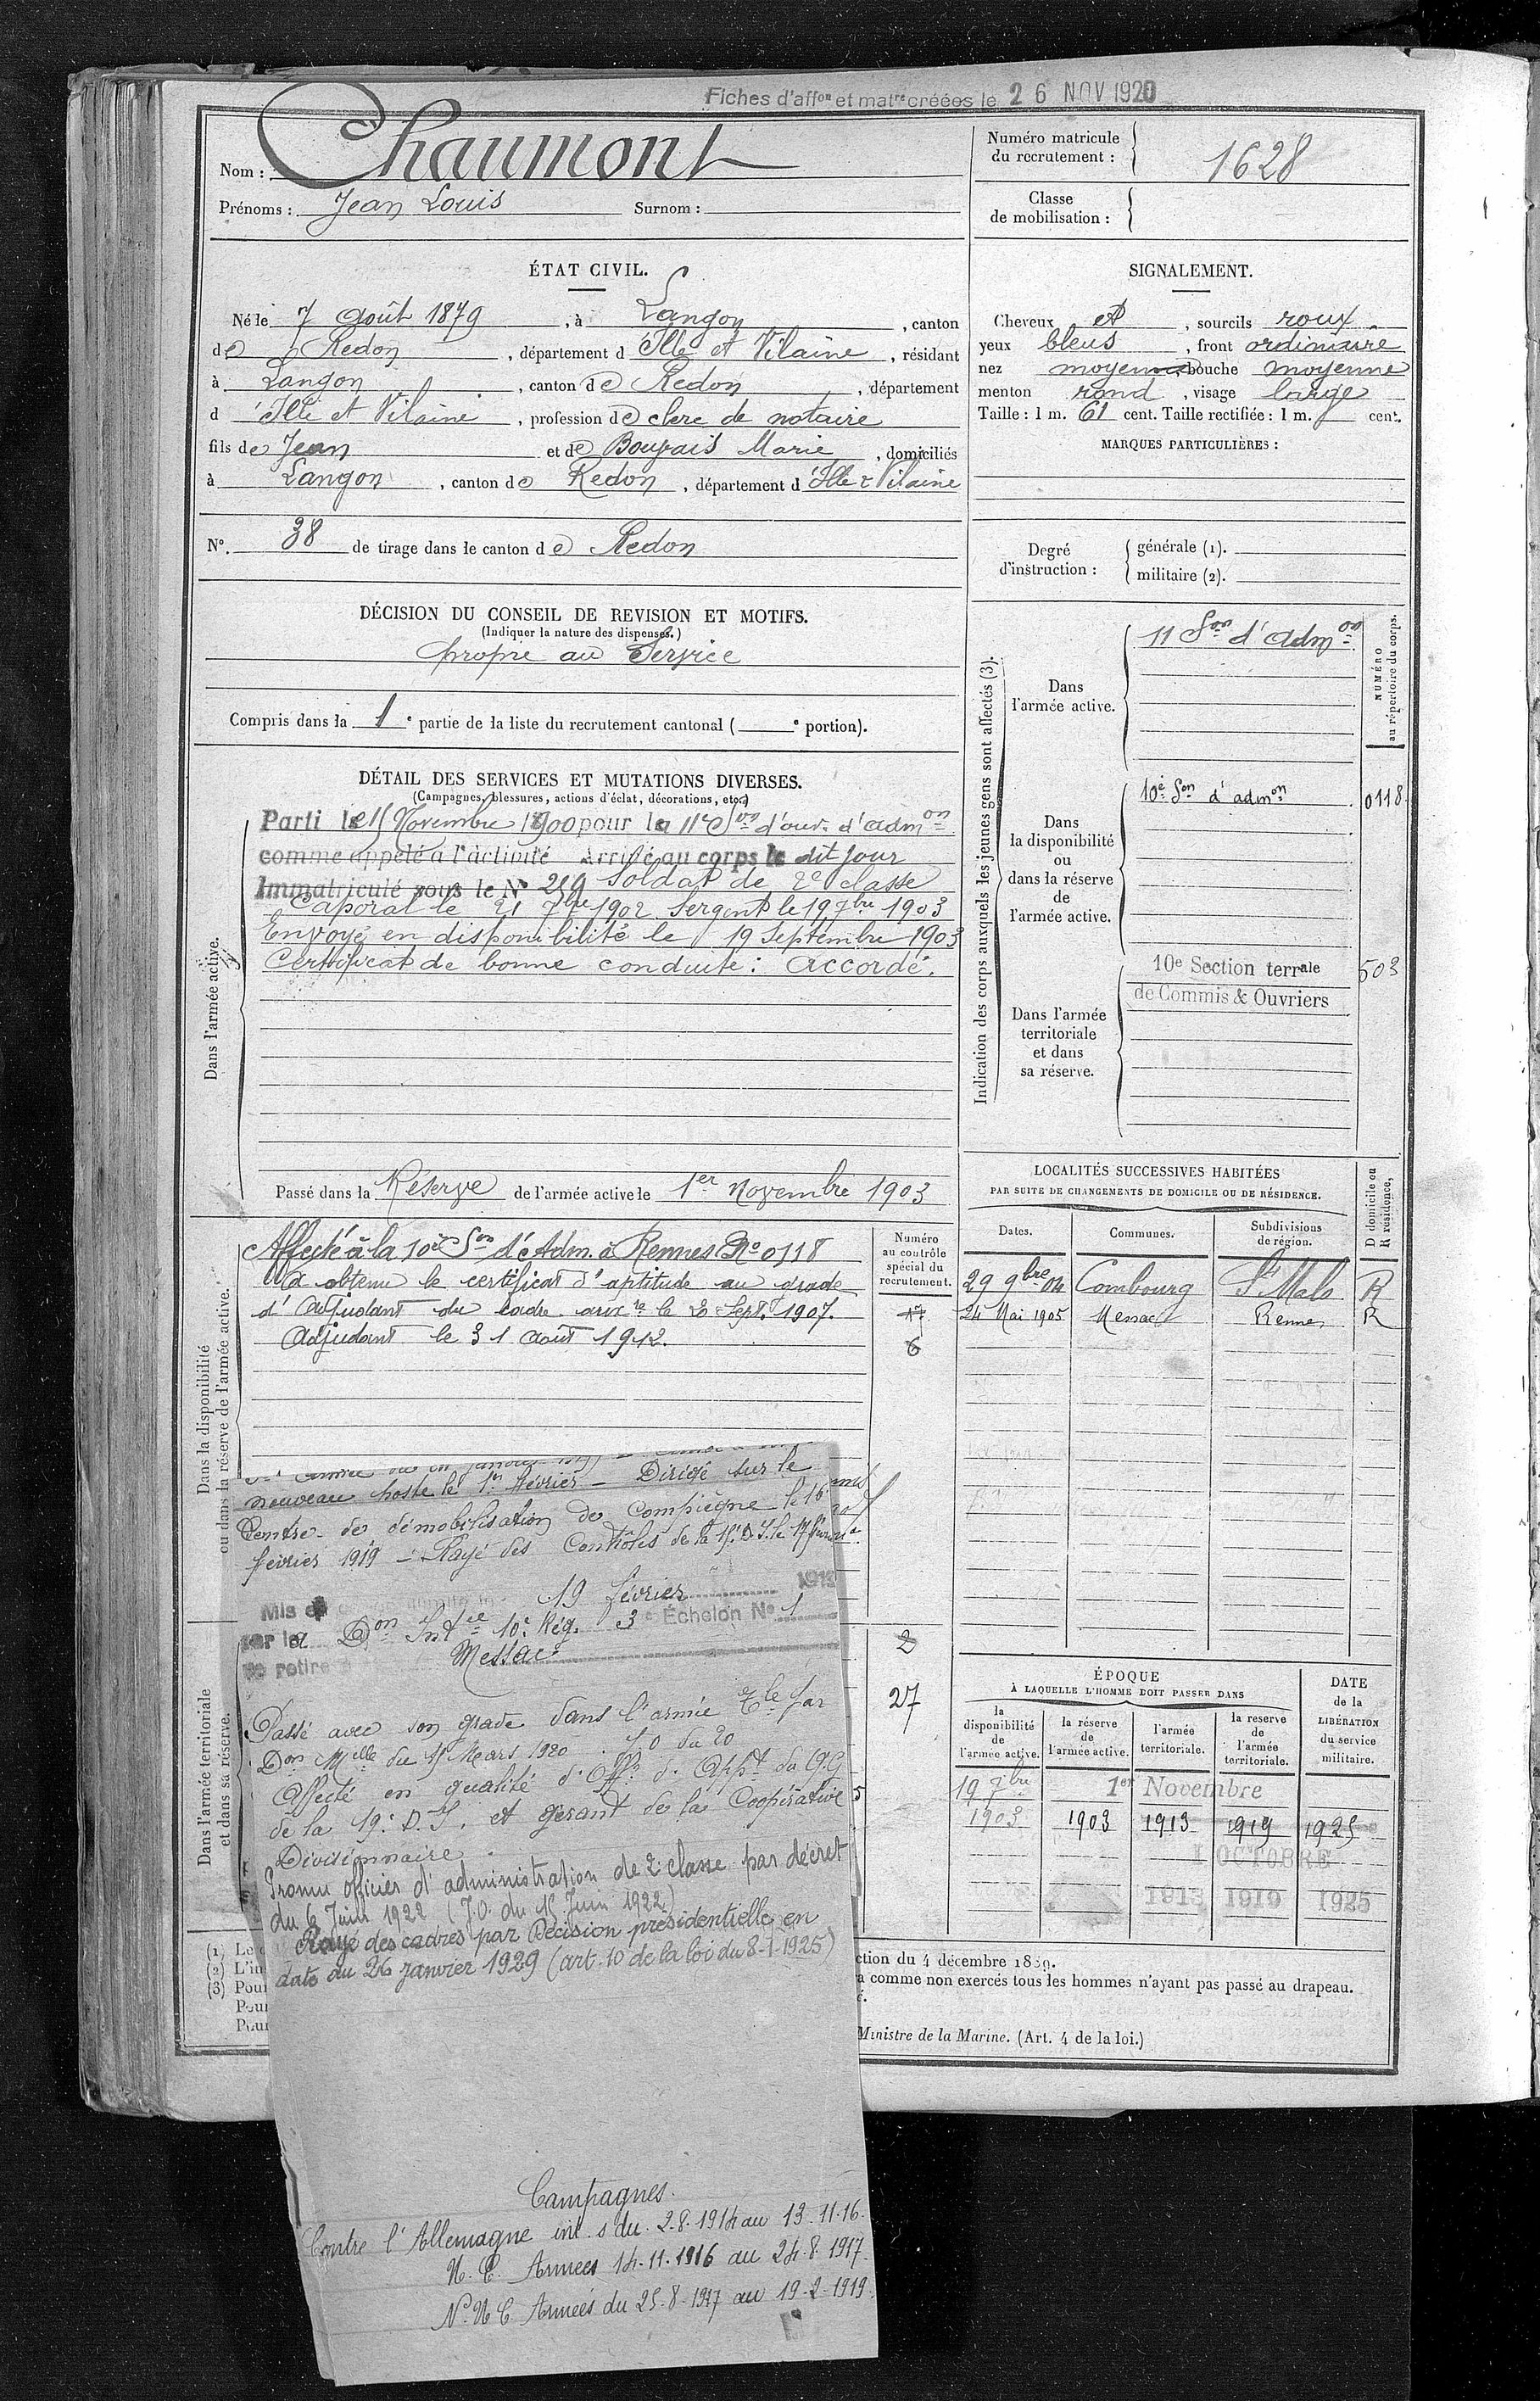 Fiches d'affon et matre créées le 26 NOV 1920
Nom : Chaumont
Prénoms : Jean Louis Surnom :
Numéro matricule
du recrutement : 1628
Classe
de mobilisation :
ÉTAT CIVIL.
Né le 7 Août 1879, à Langon, canton
de Redon, département d'Ille et Vilaine, résidant
à Langon, canton de Redon, département
d'Ille et Vilaine, profession de clerc de notaire
fils de Jean et de Marie, domiciliés
à Langon, canton de Redon, département d'Ille & Vilaine
N°. 38 de tirage dans le canton de Redon
SIGNALEMENT.
Cheveux et, sourcils roux
yeux bleus, front ordinaire
nez moyen, bouche moyenne
menton rond, visage large
Taille : 1 m. 61 cent. Taille rectifiée : 1 m. cent.
MARQUES PARTICULIÈRES :
Degré
d'instruction :
générale (1).
militaire (2).
DÉCISION DU CONSEIL DE REVISION ET MOTIFS.
(Indiquer la nature des dispenses.)
propre au Service
Compris dans la 1e partie de la liste du recrutement cantonal ( e portion).
DÉTAIL DES SERVICES ET MUTATIONS DIVERSES.
(Campagnes, blessures, actions d'éclat, décorations, etc.)
Dans l'armée active.
Parti le 15 Novembre 1900 pour la 11e Son d'ouv. d'admon
comme appelé à l'activité Arrivé au corps le dit jour
Immatriculé sous le N° 219 Soldat de 2e classe
Caporal le 21 7bre 1902 Sergent le 19 7bre 1903
Envoyé en disponibilité le 19 Septembre 1903
Certificat de bonne conduite : Accordé.
Passé dans la Réserve de l'armée active le 1er Novembre 1903
Indication des corps auxquels les jeunes gens sont affectés (3).
NUMÉRO
au répertoire du corps.
Dans
l'armée active.
11 Son d'admon
Dans
la disponibilité
ou
dans la réserve
de
l'armée active.
10e Son d'admon 0118
Dans l'armée
territoriale
et dans
sa réserve.
10e Section terrale 503
de Commis & Ouvriers
LOCALITÉS SUCCESSIVES HABITÉES
PAR SUITE DE CHANGEMENTS DE DOMICILE OU DE RÉSIDENCE.
D domicile ou
R résidence.
Dates. Communes. Subdivisions
de région.
29 9bre 04 Combourg St Malo R
24 Mai 1905 Messac Rennes R
Dans la disponibilité
ou dans la réserve de l'armée active.
Numéro
au contrôle
spécial du
recrutement.
Affecté à la 10e Son d'Adm. à Rennes No 0118
A obtenu le certificat d'aptitude au grade
d'Adjudant du cadre auxre le 2 Sept. 1907.
Adjudant le 31 août 1912.
17
6
nouveau poste le 1er février - Dirigé sur le
Centre de démobilisation de Compiègne le 16
février 1919 - Rayé des Contrôles de la D.I. le 17
Mis en 19 février 1919
sur la Don Intce 10e Rég. 3e Échelon No 1
se retire Messac
Dans l'armée territoriale
et dans sa réserve.
2
27
Passé avec son grade dans l'armée Tle par
Don Mlle du Mars 1920. J.O du 20
Affecté en qualité d'Offr d'Appt du Q.G
de la 19e D.I. et gérant de la Coopérative
Divisionnaire.
Promu officier d'administration de 2e classe par décret
du 6 Juin 1922 (J.O. du 15 Juin 1922)
Rayé des cadres par Décision présidentielle en
date du 26 Janvier 1929 (art. 10 de la loi du 8-1-1925)
ÉPOQUE
À LAQUELLE L'HOMME DOIT PASSER DANS
la
disponibilité
de
l'armée active.
la réserve
de
l'armée active.
l'armée
territoriale.
la réserve
de
l'armée
territoriale.
DATE
de la
LIBÉRATION
du service
militaire.
19 7bre 1er Novembre
1903 1903 1913 1919 1925
1 OCTOBRE
1913 1919 1925
(1) Le
(2) L'in
(3) Pour
Pour
Pour
ction du 4 décembre 1889.
a comme non exercés tous les hommes n'ayant pas passé au drapeau.
Ministre de la Marine. (Art. 4 de la loi.)
Campagnes.
Contre l'Allemagne int. s du 2.8.1914 au 13.11.16.
U. C. Armées 14.11.1916 au 24.8.1917.
N. U C Armées du 25.8.1917 au 19.2.1919.